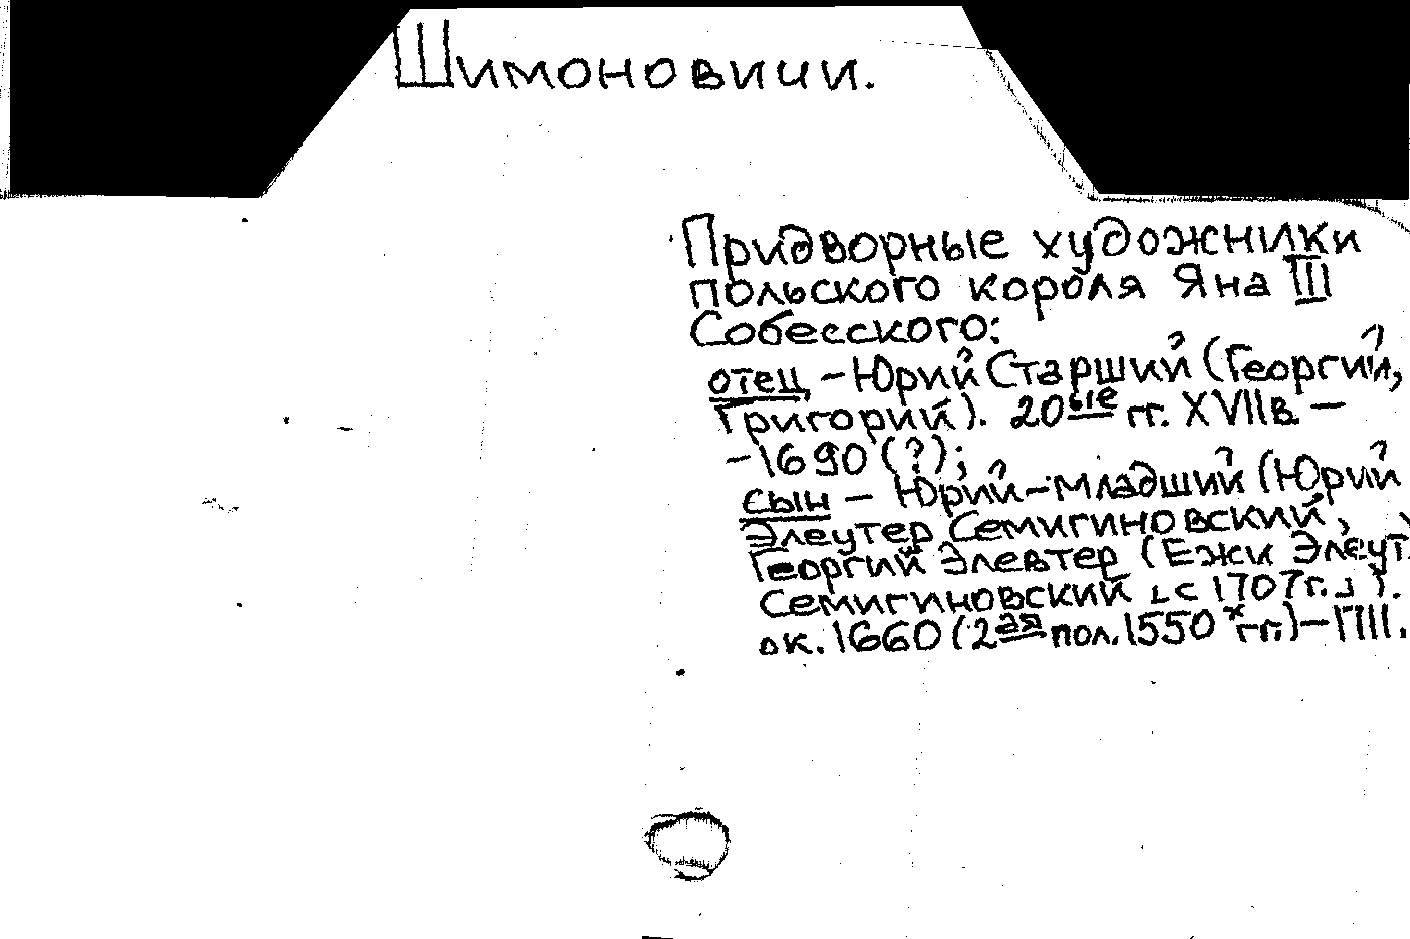 Шимоновичи.
Придворные художники
польского короля Яна III
Собесского:
отец, – Юрий Старший (Георгий,
Григорий). 20ые гг. XVII в. –
– 1690 (?);
сын – Юрий-младший (Юрий
Элеутер Семигиновский,
Георгий Элевтер (Ежи Элеут.
Семигиновский ⌞с 1707г.⌟).
ок. 1660 (2ая пол. 1550х гг.) – 1711.